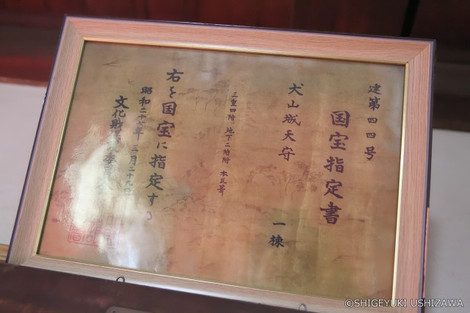 建第四四号
国宝指定書
犬山城天守
一棟
三重四階 地下二階附 本瓦葺
右を国宝に指定する
昭和二十七年 三月二十九日
文化財
©SHIGEYUKI USHIZAWA